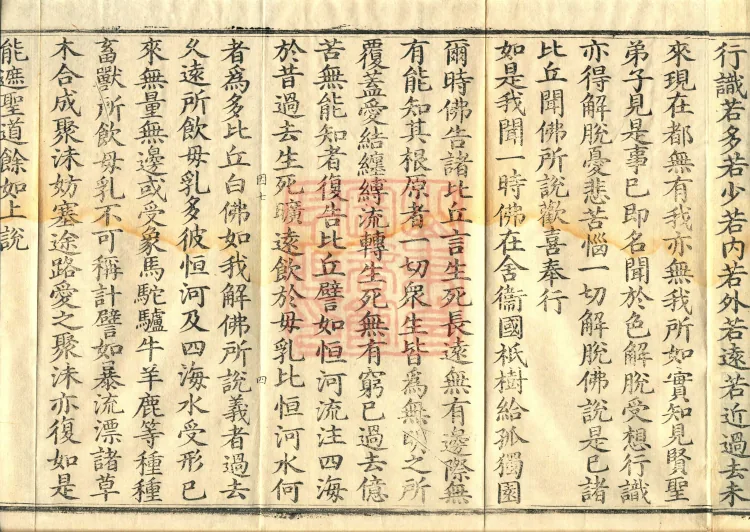 行識若多若少若内若外若遠若近過去未
來現在都無有我亦無我所如實知見賢聖
弟子見是事已即名聞於色解脫受想行識
亦得解脫憂悲苦惱一切解脫佛說是已諸
比丘聞佛所說歡喜奉行
如是我聞一時佛在舍衞國祇樹給孤獨園
爾時佛告諸比丘言生死長遠無有邊際無
有能知其根原者一切衆生皆為無明之所
覆蓋愛結纏縛流轉生死無有窮已過去億
苦無能知者復告比丘譬如恒河流注四海
於昔過去生死曠遠飲於母乳比恒河水何
四七
四
者為多比丘白佛如我解佛所說義者過去
久遠所飲母乳多彼恒河及四海水受形已
來無量無邊或受象馬駝驢牛羊鹿等種種
畜獸所飲母乳不可稱計譬如暴流漂諸草
木合成聚沫妨塞途路愛之聚沫亦復如是
能遮聖道餘如上說